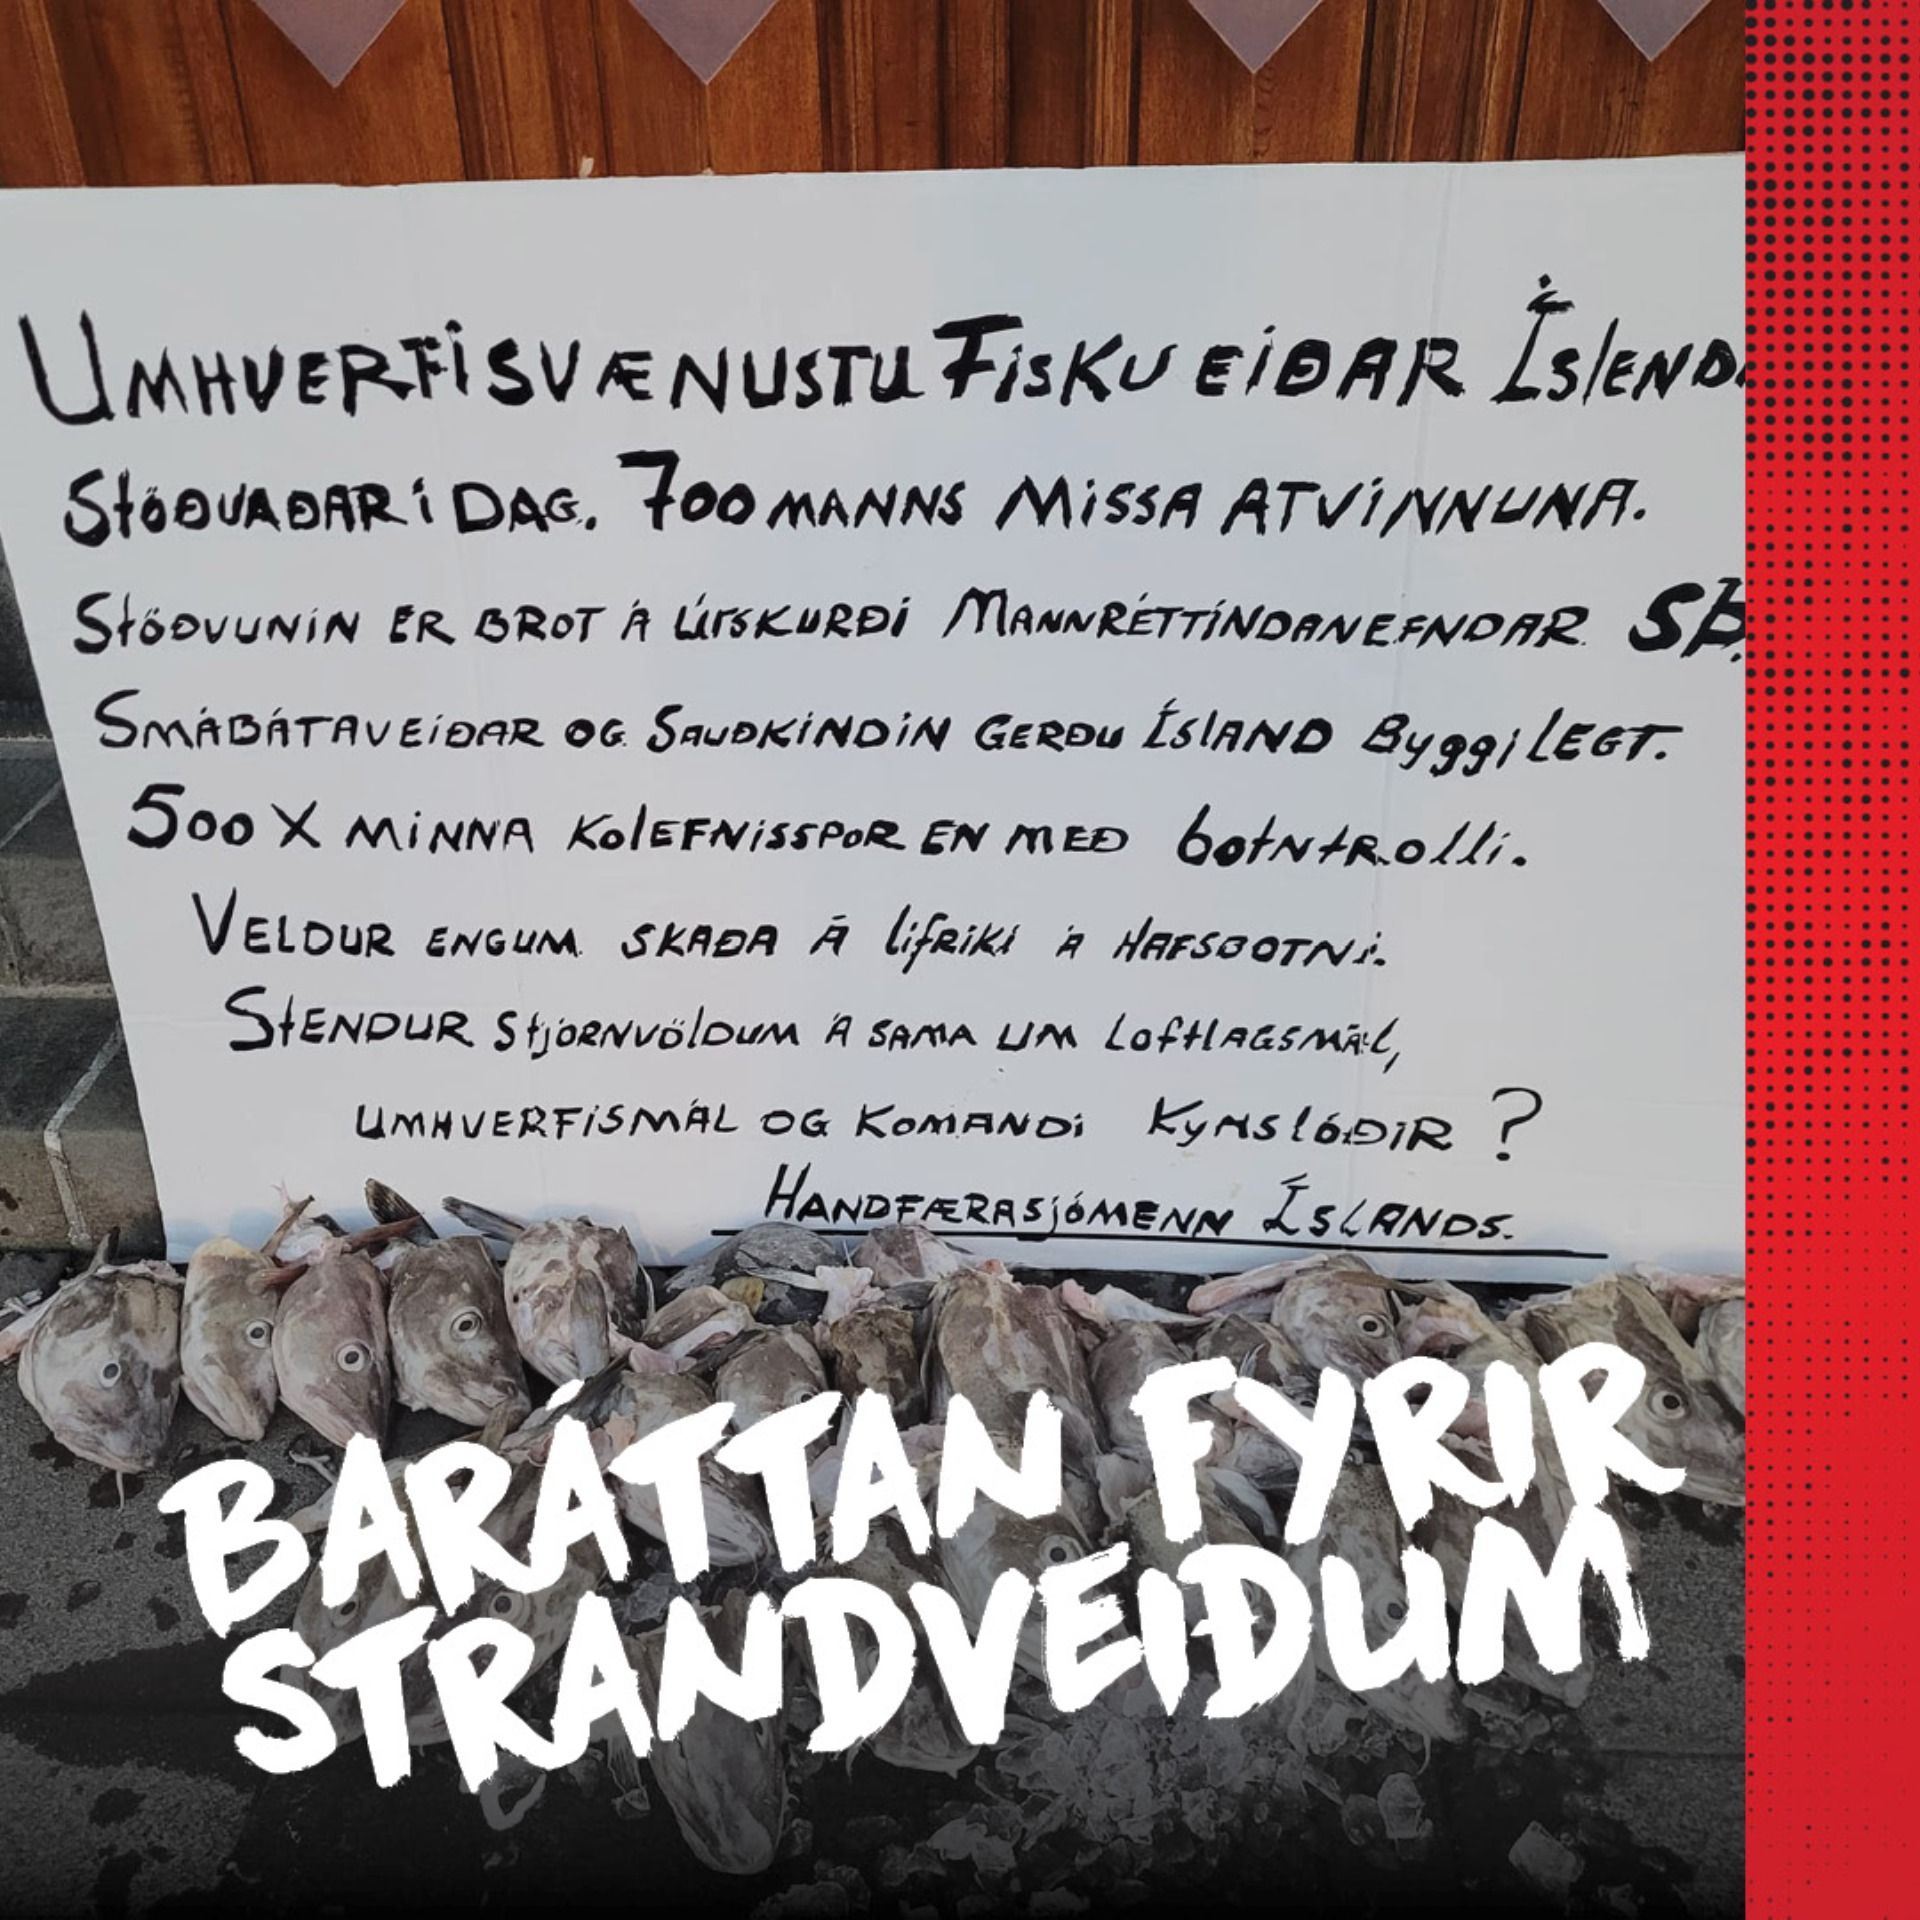 UMHVERFISVÆNUSTU FISKVEIÐAR
STÖÐVAÐAR Í DAG. 700 MANNS MISSA ATVINNUNA.
STÖÐVUNIN ER BROT Á ÚTSKURÐI MANNRÉTTINDANEFNDAR SÞ.
SMÁBÁTAVEIÐAR OG SAUÐKINDIN GERÐU ÍSLAND BYGGILEGT.
500 X MINNA KOLEFNISSPOR EN MEÐ botntrolli.
VELDUR ENGUM SKAÐA Á lífRÍKI Á HAFSBOTNI.
STENDUR STJÓRNVÖLDUM Á SAMA UM LOFTLAGSMÁL,
UMHVERFISMÁL OG KOMANDI KYNSLÓÐIR ?
HANDFÆRASJÓMENN ÍSLANDS.
BARÁTTAN FYRIR
STRANDVEIÐUM